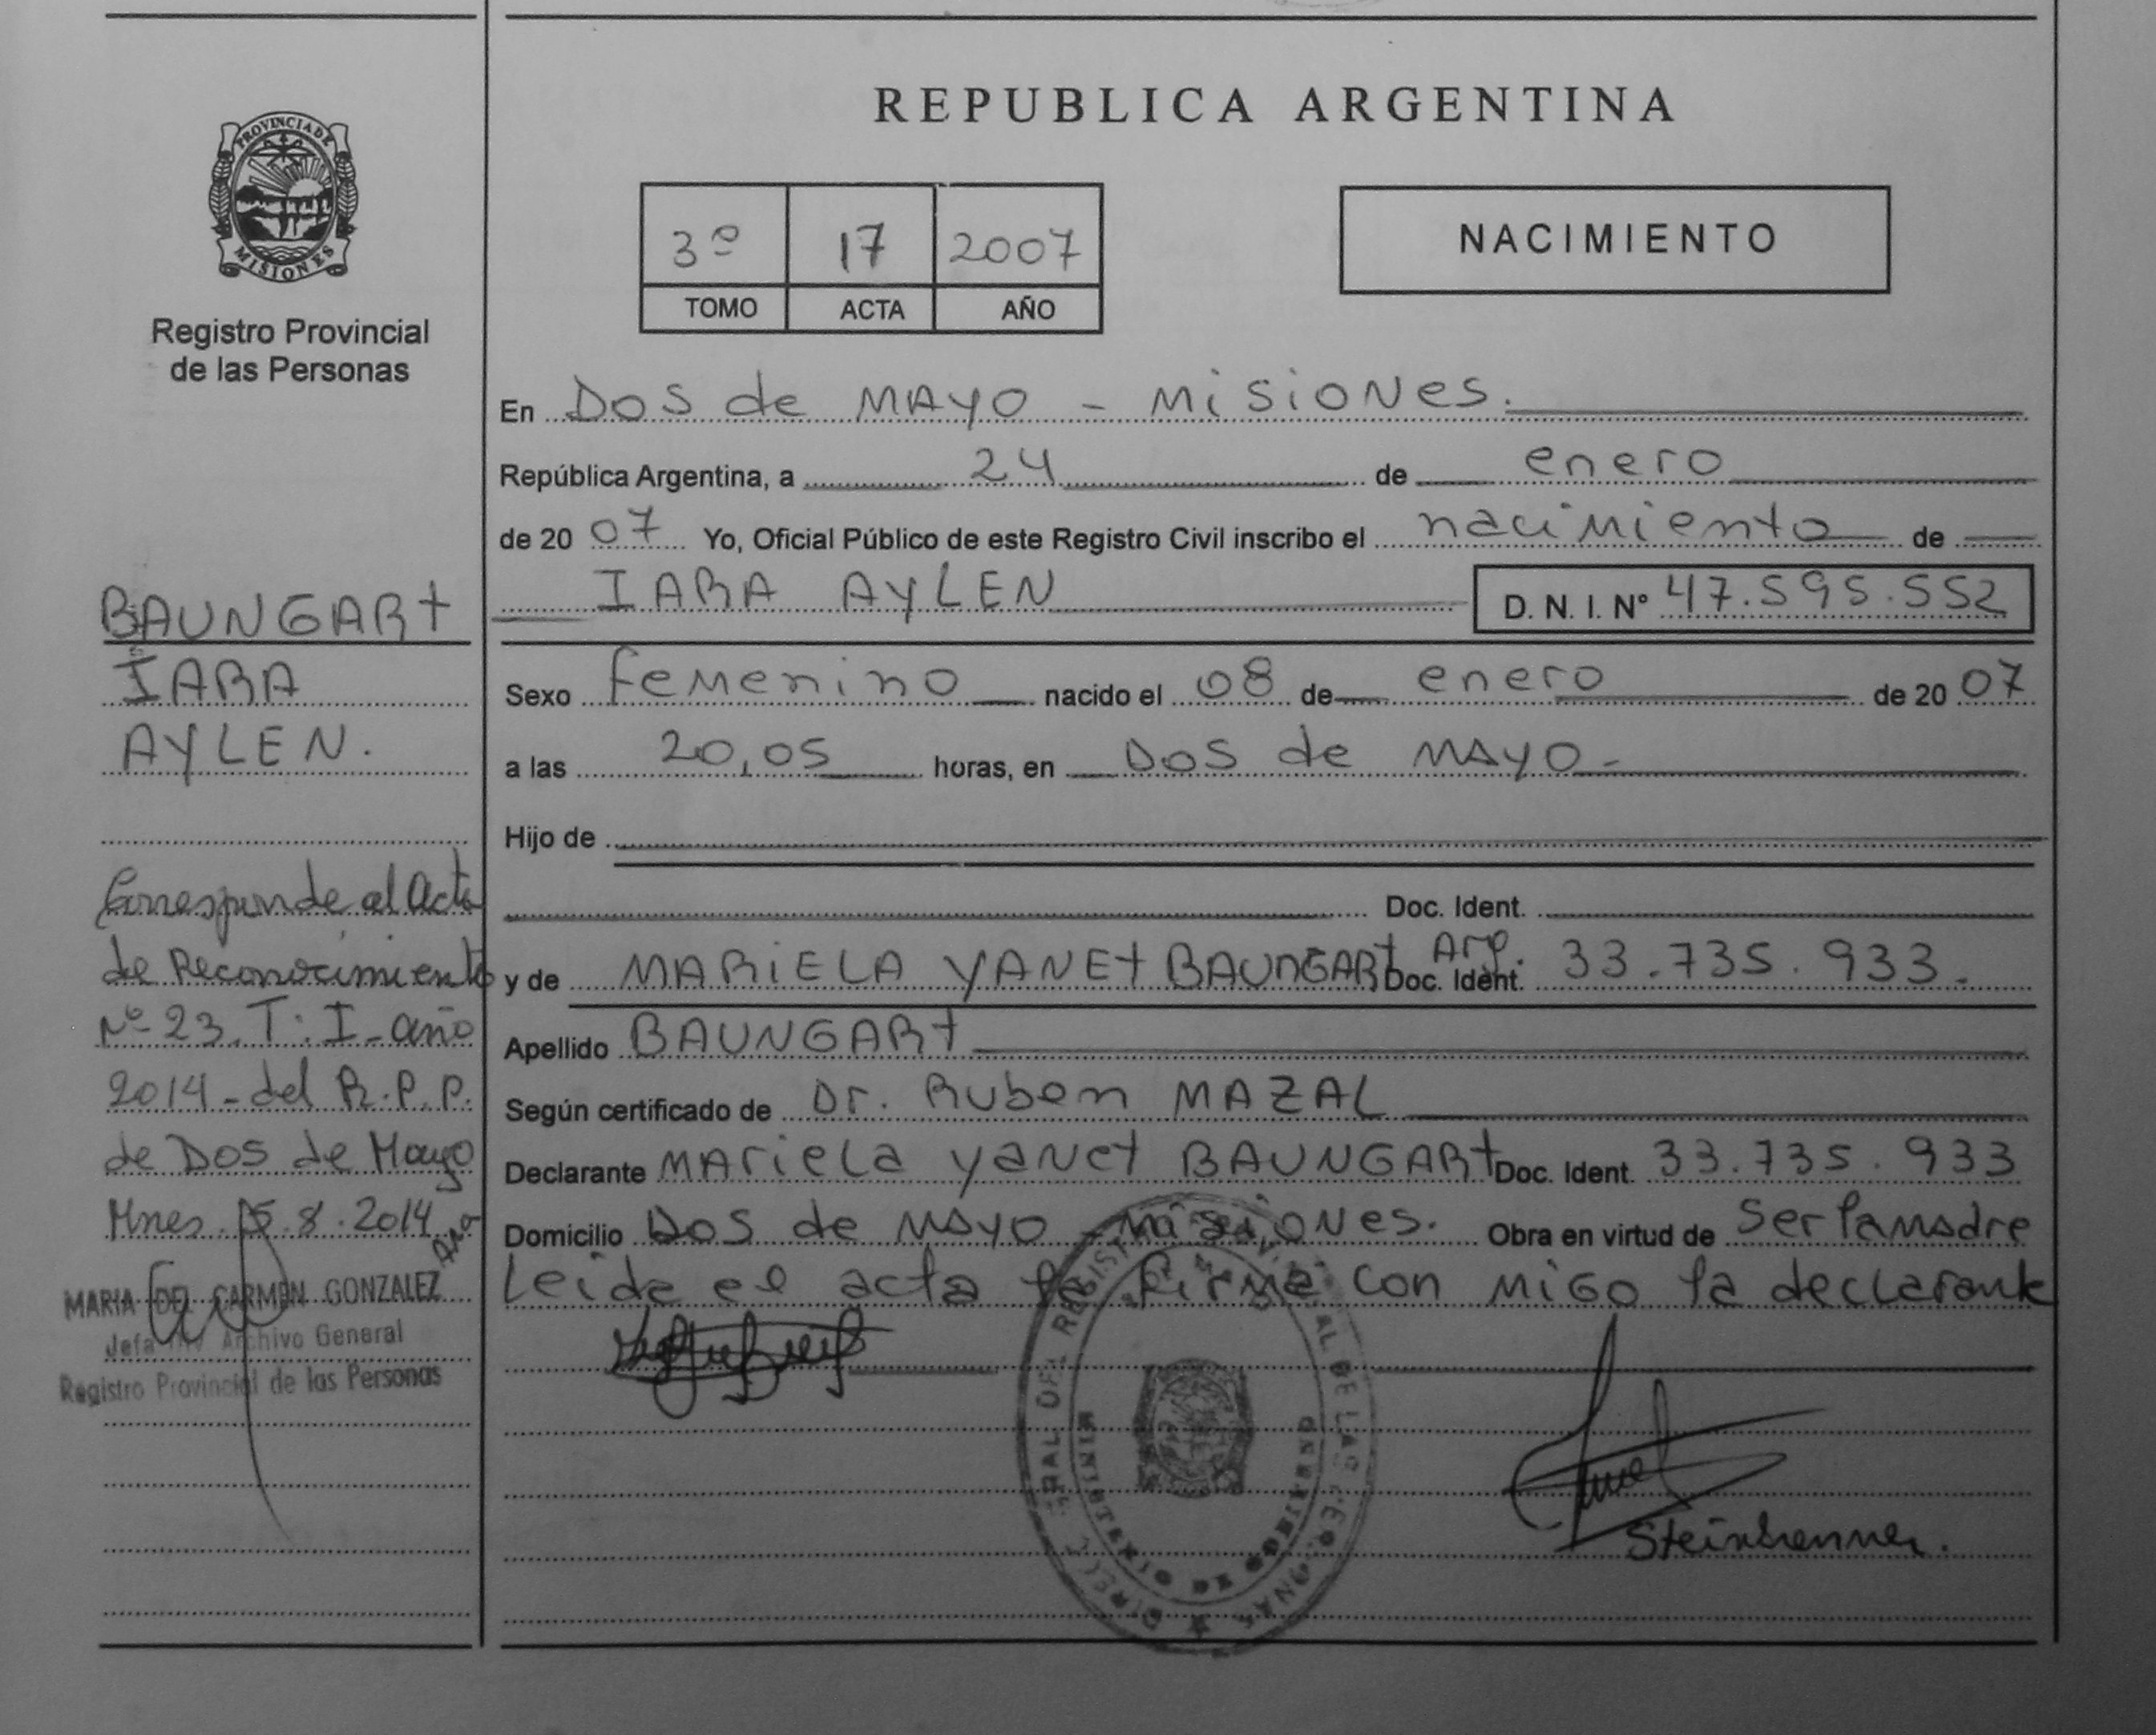 PROVINCIA DE
MISIONES
Registro Provincial
de las Personas
BAUNGARt
IARA
AYLEN.
Corresponde al Acta
de Reconocimiento
Nº 23. T: I - año
2014 - del R.P.P.
de Dos de Mayo
Mnes. 15.8.2014
MARIA DEL CARMEN GONZALEZ
Jefa Archivo General
Registro Provincial de las Personas
REPUBLICA ARGENTINA
3º 17 2007
TOMO ACTA AÑO
NACIMIENTO
En DOS de MAYO - MiSiONes.
República Argentina, a 24 de enero
de 20 07 Yo, Oficial Público de este Registro Civil inscribo el nacimiento de
IARA AYLEN D. N. I. Nº 47.595.552
Sexo femenino nacido el 08 de enero de 20 07
a las 20,05 horas, en DOS de MAYO -
Hijo de
Doc. Ident.
y de MARiELA YANEt BAUNGARt Doc. Ident. Arg. 33.735.933.
Apellido BAUNGARt
Según certificado de Dr. Ruben MAZAL
Declarante MARieLa YaNet BAUNGARt Doc. Ident. 33.735.933
Domicilio DOS de MAYO - MiSiONes. Obra en virtud de Ser la madre
Leida el acta la firma con migo la declarante
Steinbrenner.
MINISTERIO DE GOBIERNO